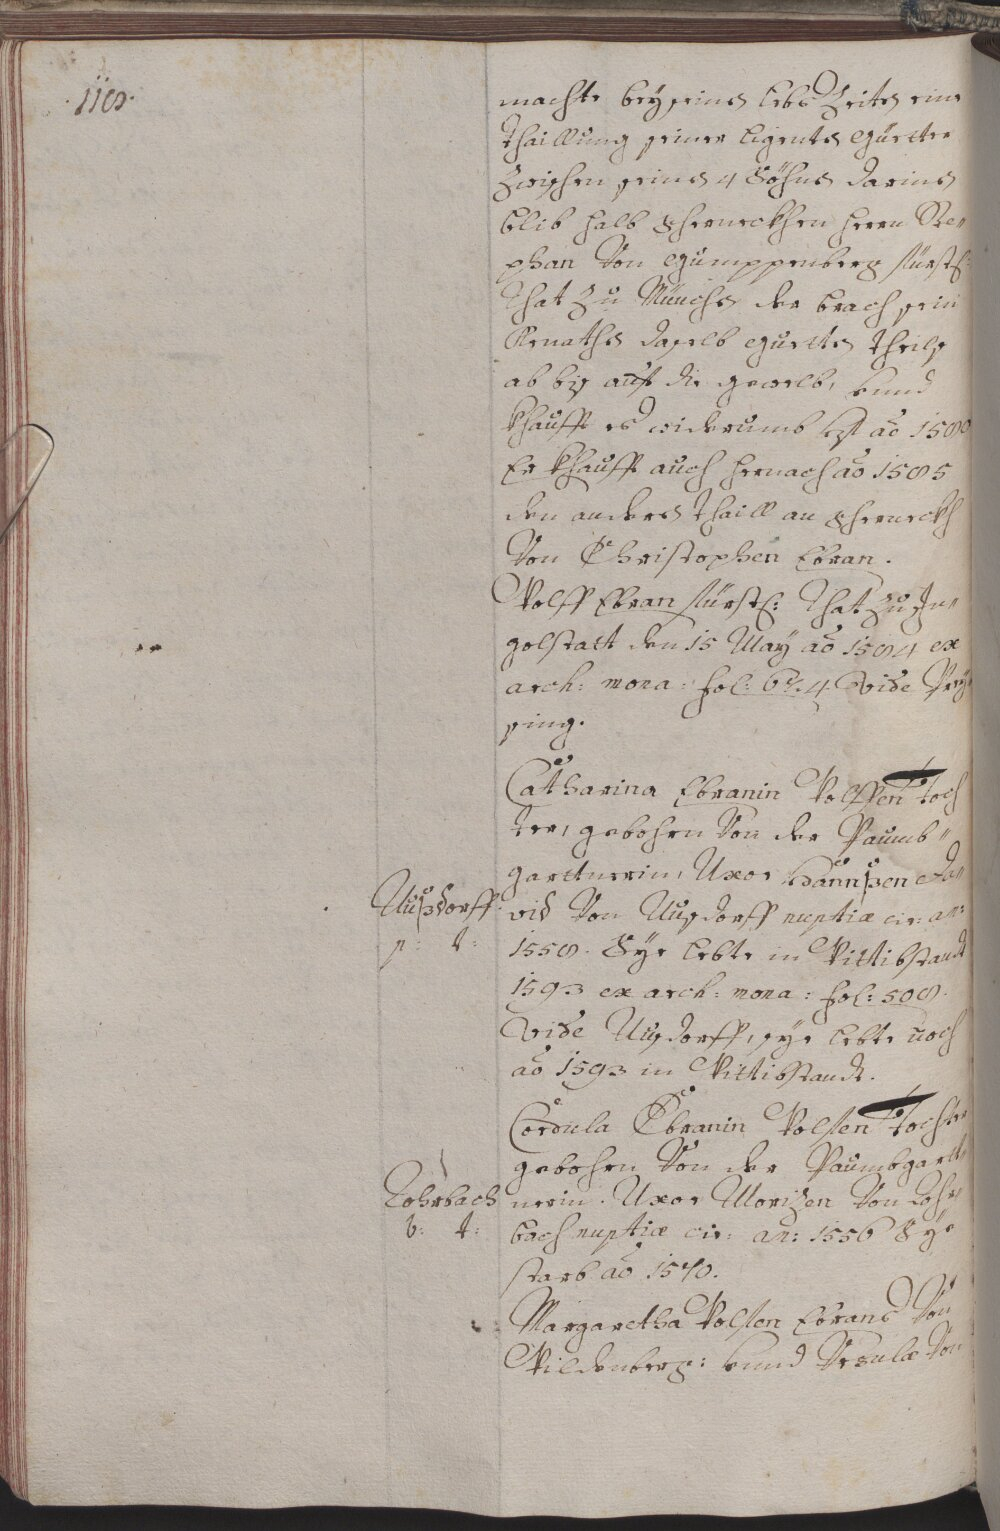 118.
machte bey seinen lebs Zeiten eine
thaillung seiner ligenten güetter
Zwischen seinen 4 Söhnen darinen
blib halb scherneckhen herrn Ste„
phan Von Gumppenberg fürstl:
Rhat Zu München der brach sein
Kenaths daselb guetten theils
ab bis auf die gewelb, vnnd
khaufft es widerumb aõ 1580
Er khaufft auch hernach aõ 1585
den andern thaill an scherneckh
Von Christophen Ebran.
Wolff Ebran fürstl: Rhat Zu In„
golstatt den 15 May aõ 1584 ex
arch: mona: fol: 4 Vide Prey„
sing.
Catharina Ebranin Wolffen toch
ter, gebohren Von der Paumb„
garttnerin, Uxor Hannßen Da„
vid Von Nusdorff nuptiæ cir: an:
Nußdorff
p: t:
1558. Sye lebte in Wittibstandt
1593 ex arch: mona: fol: 508.
Vide Nusdorff, sye lebte noch
aõ 1593 in Wittibstandt.
Cordula Ebranin Wolfen tochter
gebohren Von der Paumbgartt„
nerin. Uxor Morizen Von Rohr„
Rohrbach
v: t:
bach nuptiæ cir: an: 1556 Sye
starb aõ 1570.
Margaretha Wolfen Ebrans Von
Wildenberg: vnnd Ursulæ Von